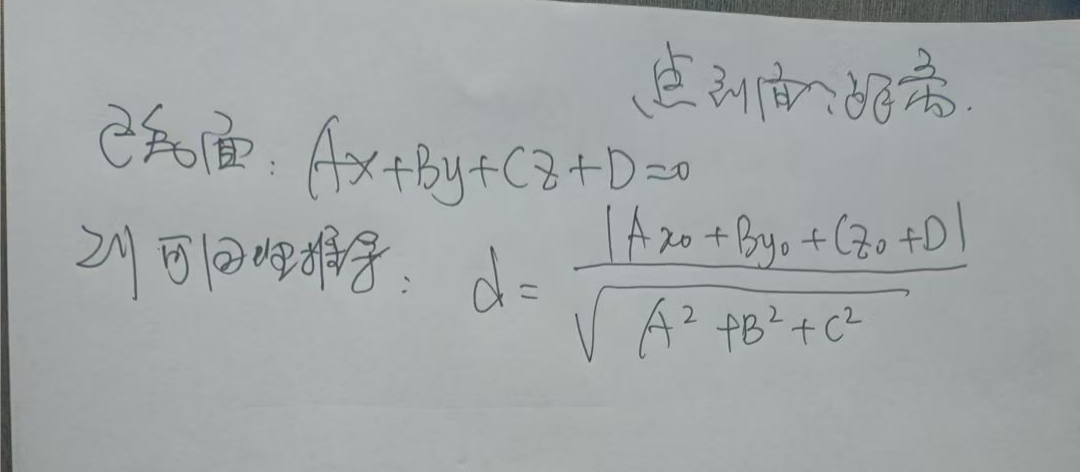 点到面的距离.
已知面: Ax+By+Cz+D=0
则可同理推导: d = |Ax₀+By₀+Cz₀+D| / √(A²+B²+C²)